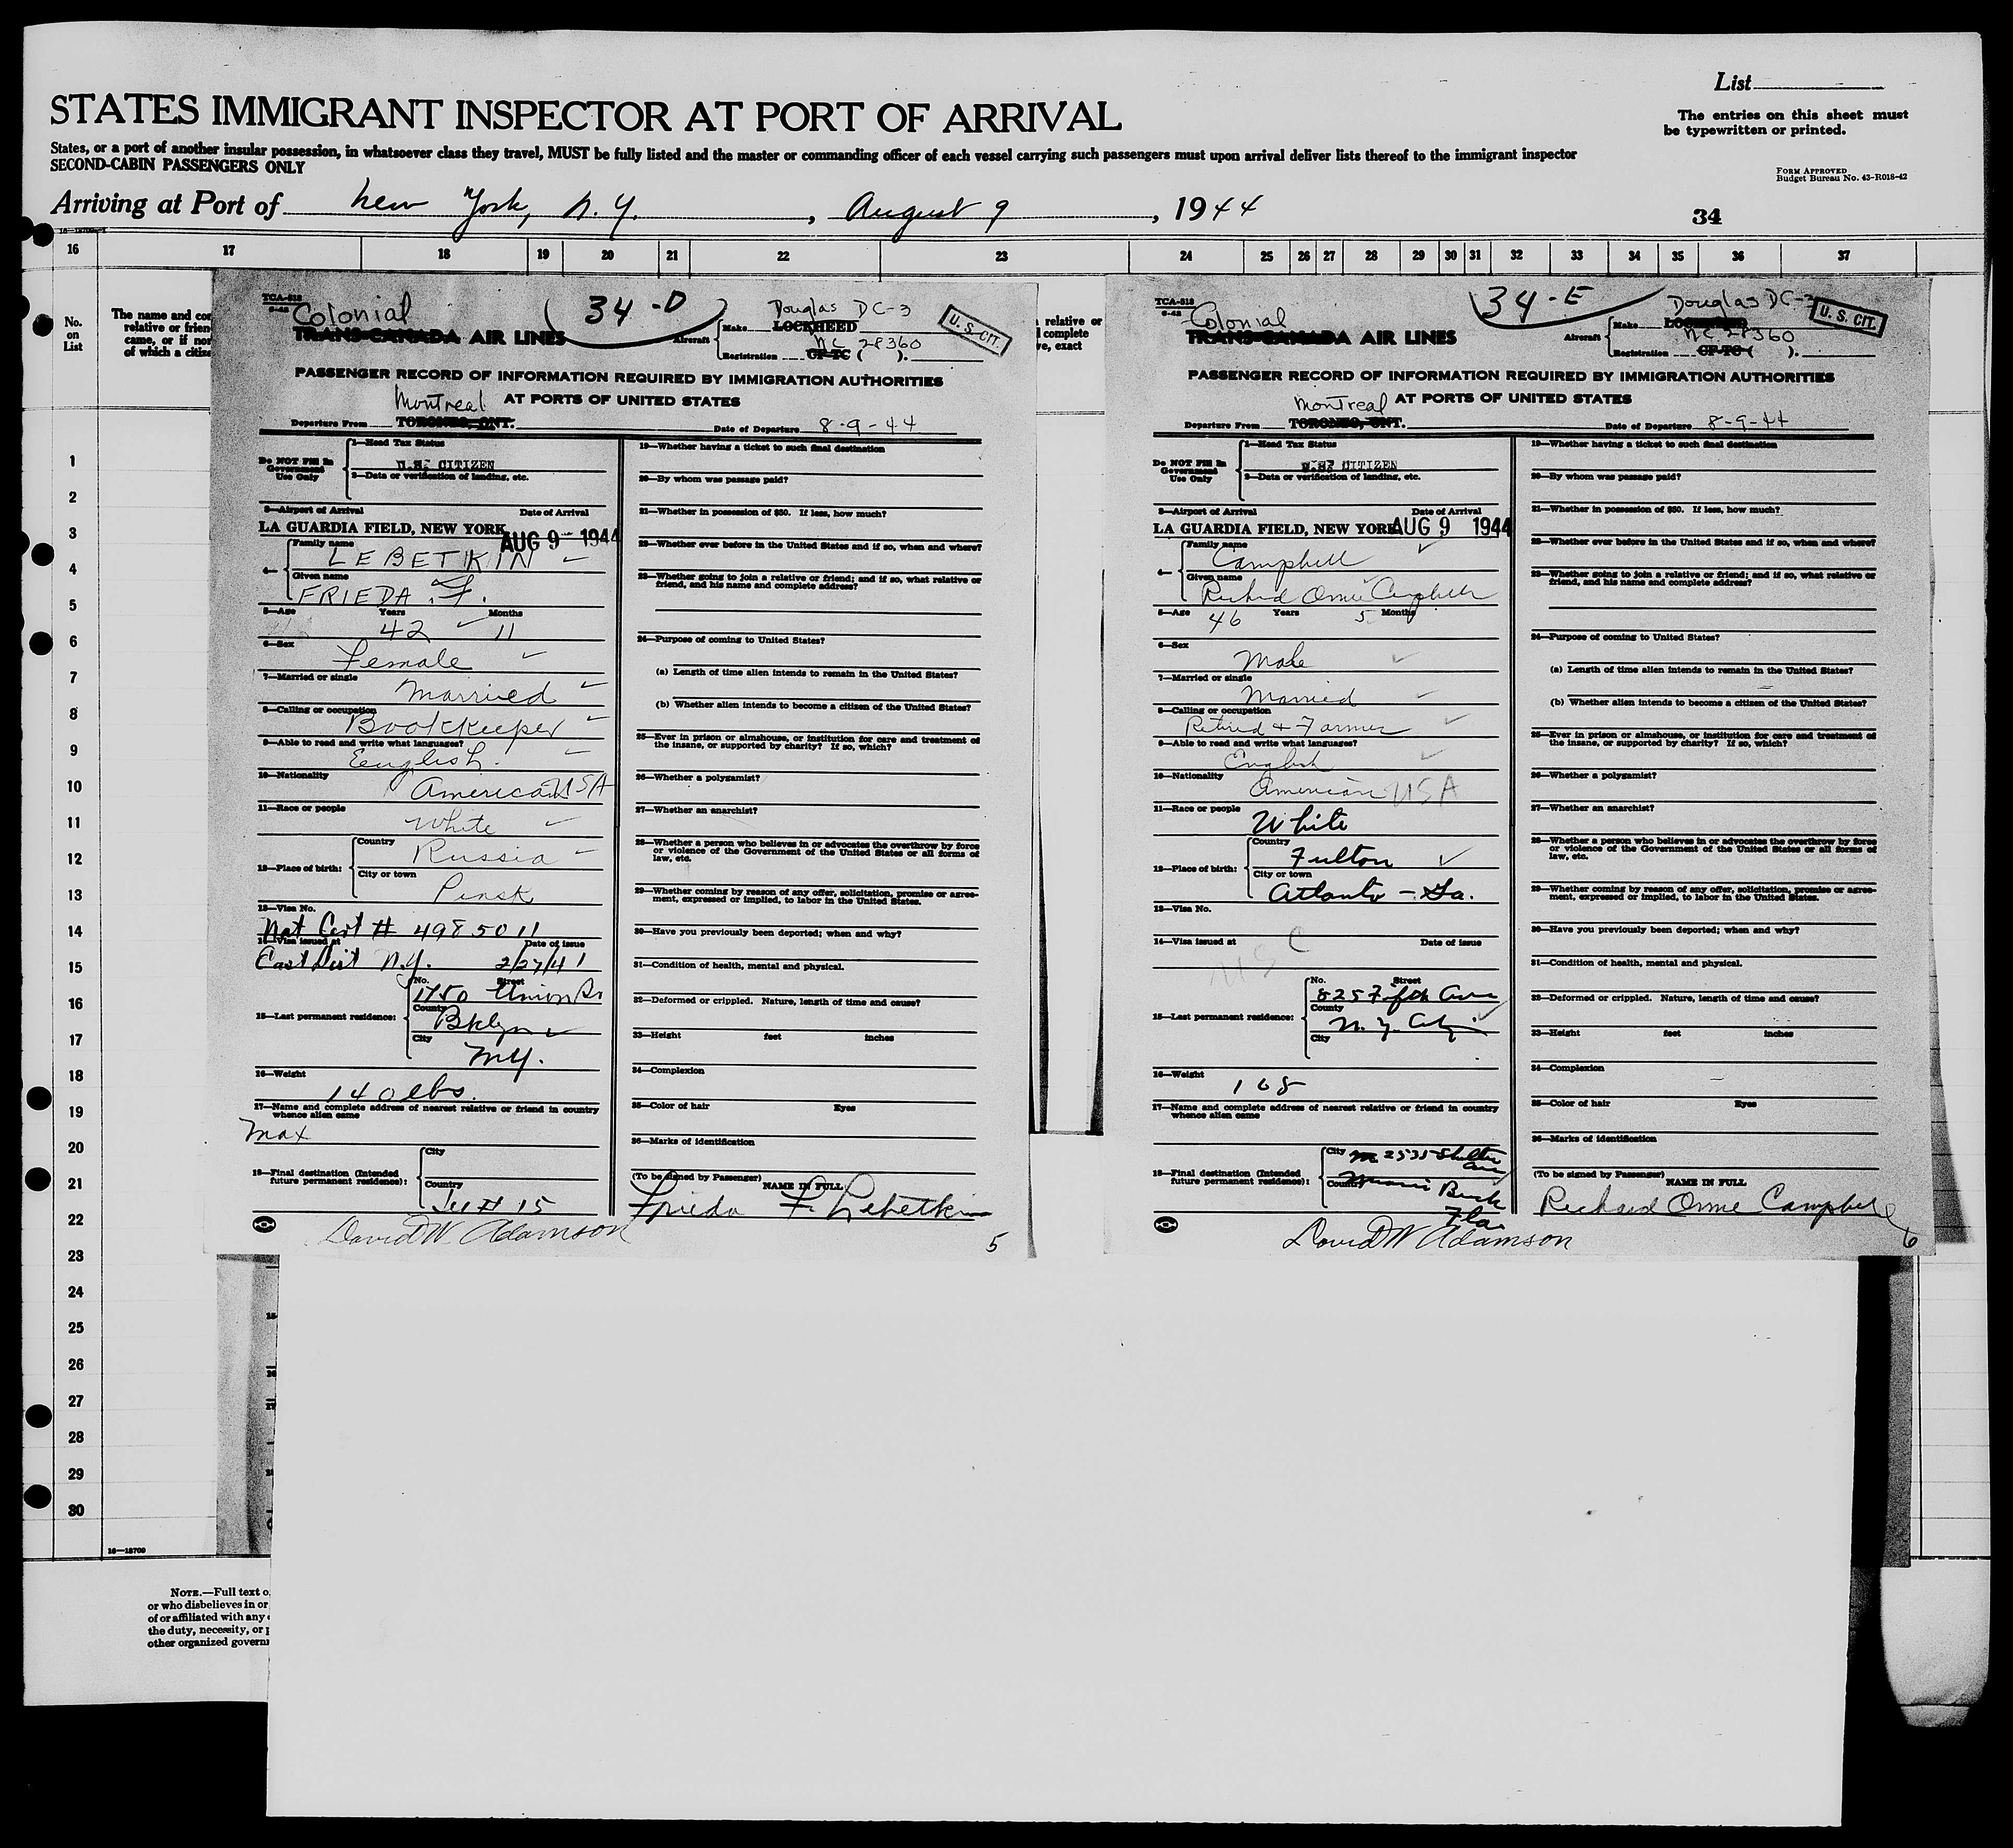 List
STATES IMMIGRANT INSPECTOR AT PORT OF ARRIVAL
The entries on this sheet must
be typewritten or printed.
States, or a port of another insular possession, in whatsoever class they travel, MUST be fully listed and the master or commanding officer of each vessel carrying such passengers must upon arrival deliver lists thereof to the immigrant inspector
SECOND-CABIN PASSENGERS ONLY
FORM APPROVED
Budget Bureau No. 43-R018-42
Arriving at Port of New York, N.Y., August 9, 1944
34
16 17 18 19 20 21 22 23 24 25 26 27 28 29 30 31 32 33 34 35 36 37
No.
on
List
The name and
relative or frien
came, or if no
of which a citiz
relative or
complete
ve, exact
1
2
3
4
5
6
7
8
9
10
11
12
13
14
15
16
17
18
19
20
21
22
23
24
25
26
27
28
29
30
16—18709
NOTE.—Full text o
or who disbelieves in or
of or affiliated with any
the duty, necessity, or
other organized govern
TCA-518
Colonial
34-D
Douglas DC-3
U. S. CIT.
TRANS-CANADA AIR LINES
Aircraft
Make LOCKHEED
NC 28360
Registration CF-TC ( ).
PASSENGER RECORD OF INFORMATION REQUIRED BY IMMIGRATION AUTHORITIES
Montreal AT PORTS OF UNITED STATES
Departure From TORONTO, ONT.
Date of Departure 8-9-44
Do NOT Fill In
Government
Use Only
1—Head Tax Status
U.S. CITIZEN
2—Data or verification of landing, etc.
3—Airport of Arrival Date of Arrival
LA GUARDIA FIELD, NEW YORK AUG 9 - 1944
4—
Family name
LEBETKIN
Given name
FRIEDA F.
5—Age Years Months
42 11
6—Sex
Female
7—Married or single
Married
8—Calling or occupation
Bookkeeper
9—Able to read and write what languages?
English.
10—Nationality
American USA
11—Race or people
White
12—Place of birth:
Country
Russia
City or town
Pinsk
13—Visa No.
Nat Cert # 4985011
14—Visa issued at Date of issue
East Dist N.Y. 2/27/41
15—Last permanent residence:
No. Street
1750 Union St
County
Bklyn
City
N.Y.
16—Weight
140 lbs.
17—Name and complete address of nearest relative or friend in country
whence alien came
Max
18—Final destination (Intended
future permanent residence):
City
Country
See # 15
David W Adamson
19—Whether having a ticket to such final destination
20—By whom was passage paid?
21—Whether in possession of $50. If less, how much?
22—Whether ever before in the United States and if so, when and where?
23—Whether going to join a relative or friend; and if so, what relative or
friend, and his name and complete address?
24—Purpose of coming to United States?
(a) Length of time alien intends to remain in the United States?
(b) Whether alien intends to become a citizen of the United States?
25—Ever in prison or almshouse, or institution for care and treatment of
the insane, or supported by charity? If so, which?
26—Whether a polygamist?
27—Whether an anarchist?
28—Whether a person who believes in or advocates the overthrow by force
or violence of the Government of the United States or all forms of
law, etc.
29—Whether coming by reason of any offer, solicitation, promise or agree-
ment, expressed or implied, to labor in the United States.
30—Have you previously been deported; when and why?
31—Condition of health, mental and physical.
32—Deformed or crippled. Nature, length of time and cause?
33—Height feet inches
34—Complexion
35—Color of hair Eyes
36—Marks of identification
(To be signed by Passenger) NAME IN FULL
Frieda F. Lebetkin
5
TCA-518
Colonial
34-E
Douglas DC-3
U. S. CIT.
TRANS-CANADA AIR LINES
Aircraft
Make LOCKHEED
NC 28360
Registration CF-TC ( ).
PASSENGER RECORD OF INFORMATION REQUIRED BY IMMIGRATION AUTHORITIES
Montreal AT PORTS OF UNITED STATES
Departure From TORONTO, ONT.
Date of Departure 8-9-44
Do NOT Fill In
Government
Use Only
1—Head Tax Status
U.S. CITIZEN
2—Data or verification of landing, etc.
3—Airport of Arrival Date of Arrival
LA GUARDIA FIELD, NEW YORK AUG 9 1944
4—
Family name
Campbell
Given name
Richard Orme Campbell
5—Age Years Months
46 5
6—Sex
Male
7—Married or single
Married
8—Calling or occupation
Retired + Farmer
9—Able to read and write what languages?
English
10—Nationality
American USA
11—Race or people
White
12—Place of birth:
Country
Fulton
City or town
Atlanta - Ga.
13—Visa No.
14—Visa issued at Date of issue
USC
15—Last permanent residence:
No. Street
825 Fifth Ave
County
N.Y. City
City
16—Weight
168
17—Name and complete address of nearest relative or friend in country
whence alien came
18—Final destination (Intended
future permanent residence):
City 2535
Country Miami Beach
Fla.
David W Adamson
19—Whether having a ticket to such final destination
20—By whom was passage paid?
21—Whether in possession of $50. If less, how much?
22—Whether ever before in the United States and if so, when and where?
23—Whether going to join a relative or friend; and if so, what relative or
friend, and his name and complete address?
24—Purpose of coming to United States?
(a) Length of time alien intends to remain in the United States?
(b) Whether alien intends to become a citizen of the United States?
25—Ever in prison or almshouse, or institution for care and treatment of
the insane, or supported by charity? If so, which?
26—Whether a polygamist?
27—Whether an anarchist?
28—Whether a person who believes in or advocates the overthrow by force
or violence of the Government of the United States or all forms of
law, etc.
29—Whether coming by reason of any offer, solicitation, promise or agree-
ment, expressed or implied, to labor in the United States.
30—Have you previously been deported; when and why?
31—Condition of health, mental and physical.
32—Deformed or crippled. Nature, length of time and cause?
33—Height feet inches
34—Complexion
35—Color of hair Eyes
36—Marks of identification
(To be signed by Passenger) NAME IN FULL
Richard Orme Campbell
6